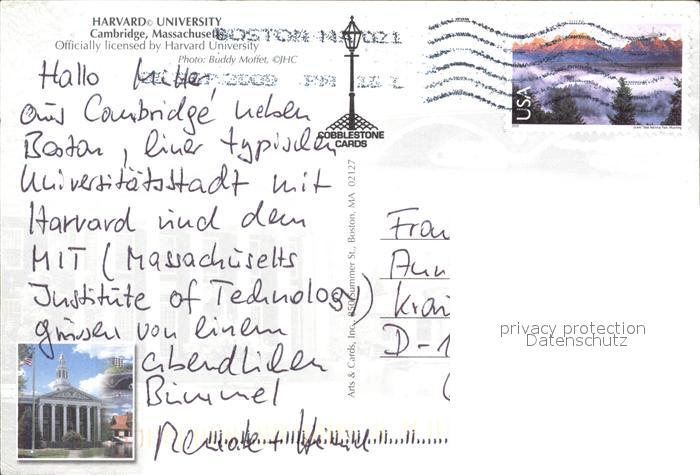 HARVARD© UNIVERSITY
Cambridge, Massachusetts
Officially licensed by Harvard University
Photo: Buddy Moffet, ©JHC
BOSTON MA 021
PM
USA
COBBLESTONE
CARDS
Arts & Cards, Inc., Summer St., Boston, MA 02127
Hallo
aus Cambridge neben
Boston, einer typischen
Universitätsstadt mit
Harvard und dem
MIT (Massachusetts
Institute of Technology)
grüssen von einem
abendlichen
Bummel
Renate +
Frau
Ann
D-1
privacy protection
Datenschutz